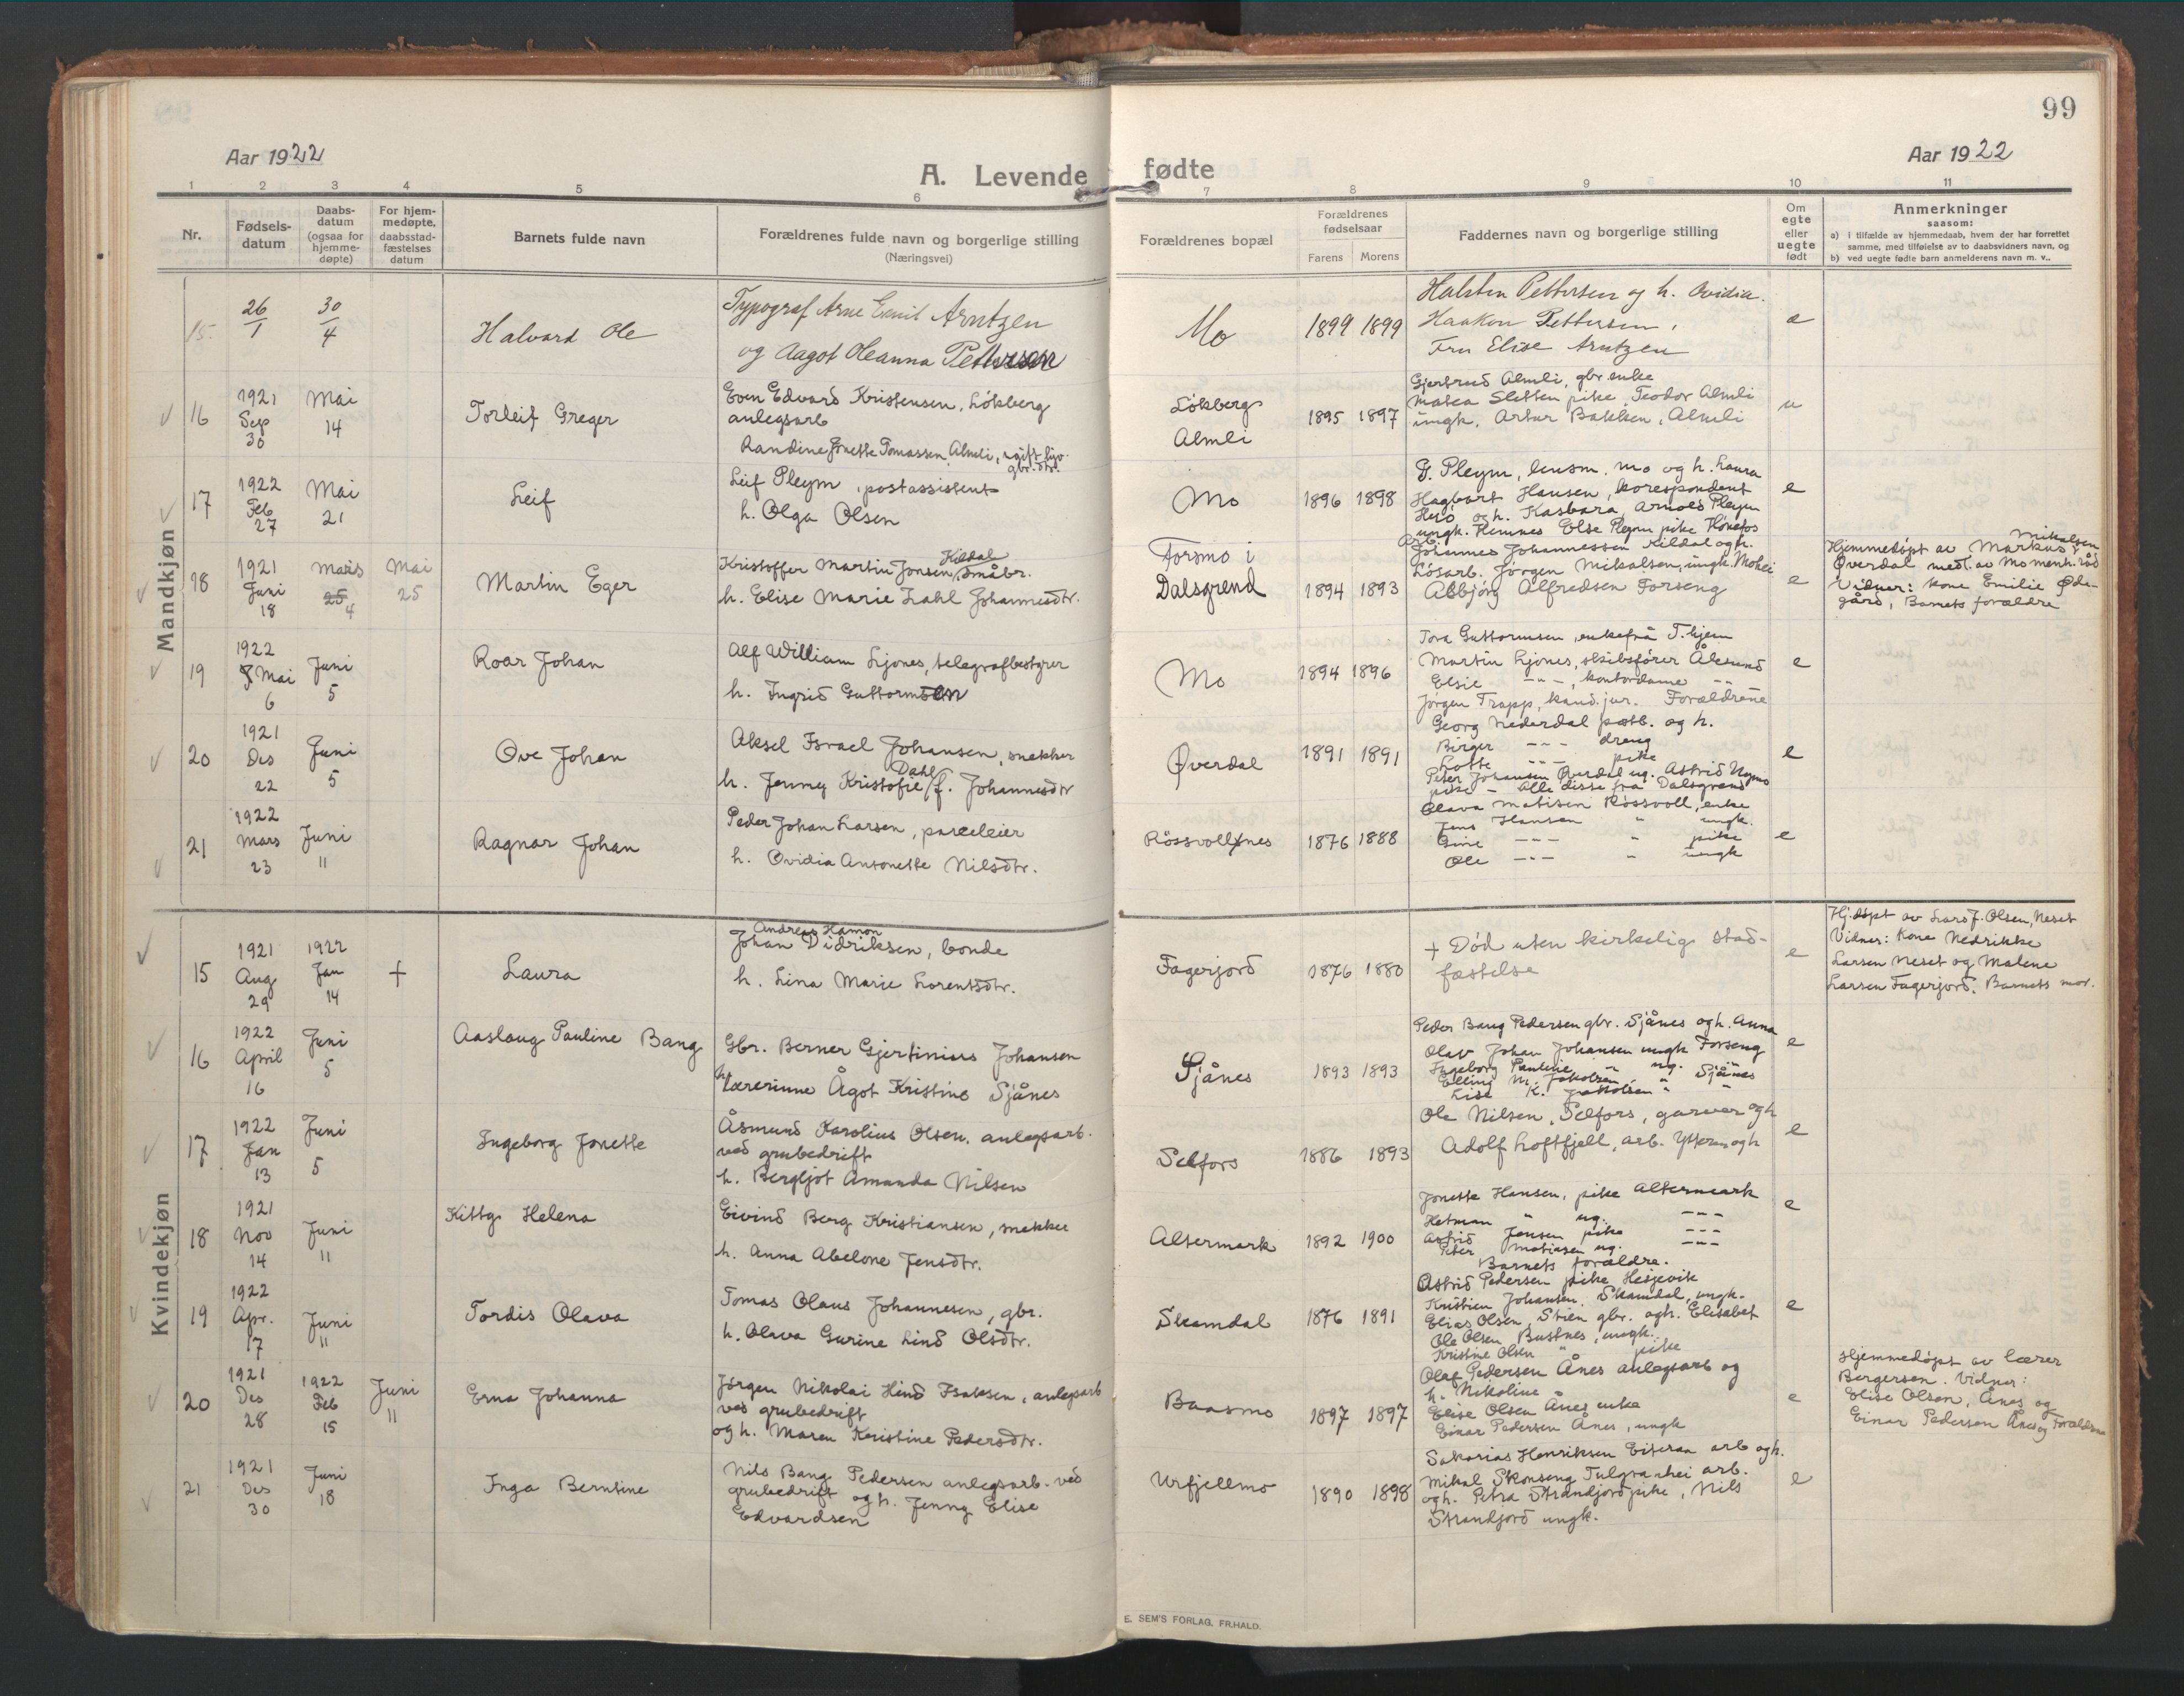 99
Aar 1922
Aar 1922
A. Levende fødte
1 2 3 4 5 6 7 8 9 10 11
Nr.
Fødsels-
datum
Daabs-
datum
(ogsaa for
hjemme-
døpte)
For hjem-
medøpte,
daabsstad-
fæstelses
datum
Barnets fulde navn
Forældrenes fulde navn og borgerlige stilling
(Næringsvei)
Forældrenes bopæl
Forældrenes
fødselsaar
Farens Morens
Faddernes navn og borgerlige stilling
Om
egte
eller
uegte
født
Anmerkninger
saasom:
a) i tilfælde av hjemmedaab, hvem der har forrettet
samme, med tilføielse av to daabsvidners navn, og
b) ved uegte fødte barn anmelderens navn m. v..
Mandkjøn
15.
26
1
30
4
Halvard Ole
Typograf Arne Emil Arntzen
og Aagot Oleanna Pettersen
Mo
1899 1899
Halsten Pettersen og h. Ovidia.
Haakon Pettersen,
Fru Elise Arntzen
e
16
1921
Sep
30
Mai
14
Torleif Greger
Even Edvard Kristensen, Løkberg
anlegsarb
Randine Jonette Tomassen, Almli, ugift
gbr.dtr.
Løkberg
Almli
1895 1897
Gjertrud Almli, gbr enke
Matea Sletten pike, Teodor Almli
ungk. Artur Bakken, Almli
u
17
1922
Feb
27
Mai
21
Leif
Leif Pleym, postassistent
h. Olga Olsen
Mo
1896 1898
G. Pleym, lensm. Mo og h. Laura
Hagbart Hansen, korespondent
og h. Kasbara, Arnold Pleym
ungk. Hemnes Else Pleym pike Hønefos
e
18
1921
Juni
18
Mars
25
4
Mai
25
Martin Eger
Kristoffer Martin Jonsen Kildal, småbr.
h. Elise Marie Lahl Johannesdtr.
Forsmo i
Dalsgrend
1894 1893
Arb.
Johannes Johannessen Kildal og h.
Løsarb. Jørgen Mikalsen, ungk. Mohei
Asbjørg Alfredsen Forseng
e
Hjemmedøpt av Markus Mikalsen
Øverdal medl. av Mo menh.råd
Vidner: Kone Emilie Øde-
gård, Barnets forældre
19
1922
Mai
6
Juni
5
Roar Johan
Alf William Ljones, telegrafbestyrer
h. Ingrid Guttormsen
Mo
1894 1896
Tora Guttormsen, enkefrå T.hjem
Martin Ljones, skibsfører Ålesund
Elsie -"-, kontordame -"-
Jørgen Trapp, kand.jur. Forældrene
e
20
1921
Des
22
Juni
5
Ove Johan
Aksel Israel Johansen, snekker
h. Jenny Kristofie Dahl f. Johannesdtr
Øverdal
1891 1891
Georg Nederdal pætb. og h.
Birger -"- dreng
Lotte -"- pike
Peter Johansen Øverdal ug. Astrid Nymo
pike - Alle disse fra Dalsgrend
e
21
1922
Mars
23
Juni
"
Ragnar Johan
Peder Johan Larsen, parceleier
h. Ovidia Antonette Nilsdtr.
Røssvollnes
1876 1888
Olava Matisen Røssvoll, enke
Jens Hansen " ungk.
Gine -"- " pike
Ole -"- " ungk
e
Kvindekjøn
15
1921
Aug
29
1922
Jan
14
+
Laura
Andreas Hamon
Johan Didriksen, bonde
h. Lina Marie Lorentsdtr.
Fagerjord
1876 1880
+ Død uten kirkelig stad-
fæstelse
e
Hj.døpt av Lars J. Olsen, Neset
Vidner: Kone Hedrikke
Larsen Neset og Malene
Larsen Fagerjord. Barnets mor.
16
1922
April
16
Juni
5
Aaslaug Pauline Bang
Gbr. Berner Gjertinius Johansen
h. Lærerinne Ågot Kristine Sjånes
Sjånes
1893 1893
Peder Bang Pedersen gbr. Sjånes og h. Anna
Olav Johan Johansen ungk Forseng
Ingeborg Pauline " ug. "
Elling M. Jakobsen " Sjånes
Lise K. Jakobsen " "
e
17
1922
Jan
13
Juni
5
Ingeborg Jonette
Åsmund Karolius Olsen, anlegsarb.
ved grubedrift
h. Bergljot Amanda Nilsen
Selfors
1886 1893
Ole Nilsen, Selfors, garver og h
Adolf Loftfjell, arb. Ytteren og h
e
18
1921
Nov
14
Juni
"
Kitty Helena
Eivind Berg Kristiansen, snekker
h. Anna Abelone Jensdtr.
Altermark
1892 1900
Jonette Hansen, pike Altermark
Hetman " ug. -"-
Astrid Jensen pike -"-
Peter Matiasen ug. -"-
Barnets forældre.
e
19
1922
Apr.
17
Juni
"
Tordis Olava
Tomas Olaus Johannesen, gbr.
h. Olava Gurine Lind Olsdtr.
Skamdal
1876 1891
Astrid Pedersen pike Hesjevik
Kristien Johansen. Skamdal, ungk.
Elias Olsen, Stien gbr. og h. Elisabet
Ole Olsen, Bustnes, ungk.
Kristine Olsen " pike
e
20
1921
Des
28
1922
Feb
15
Juni
"
Erna Johanna
Jørgen Nikolai Hind Isaksen, anlegsarb
ved grubedrift
og h. Maren Kristine Pedersdtr.
Baasmo
1897 1897
Olaf Pedersen Ånes anlegsarb og
h. Nikoline
Elise Olsen Ånes enke
Einar Pedersen Ånes, ungk
e
Hjemmedøpt av lærer
Bergersen. Vidner:
Elise Olsen, Ånes og
Einar Pedersen Ånes og Forældrene
21
1921
Des
30
Juni
18
Inga Berntine
Nils Bang Pedersen anlegsarb. ved
grubedrift og h. Jenny Elise
Edvardsen
Urfjellmo
1890 1898
Sakarias Henriksen Eiteraa arb og h.
Mikal Skonseng Tulgranhei arb.
og h. Petra Strandjord pike, Nils
Strandjord ungk.
e
E. SEM'S FORLAG, FR.HALD.